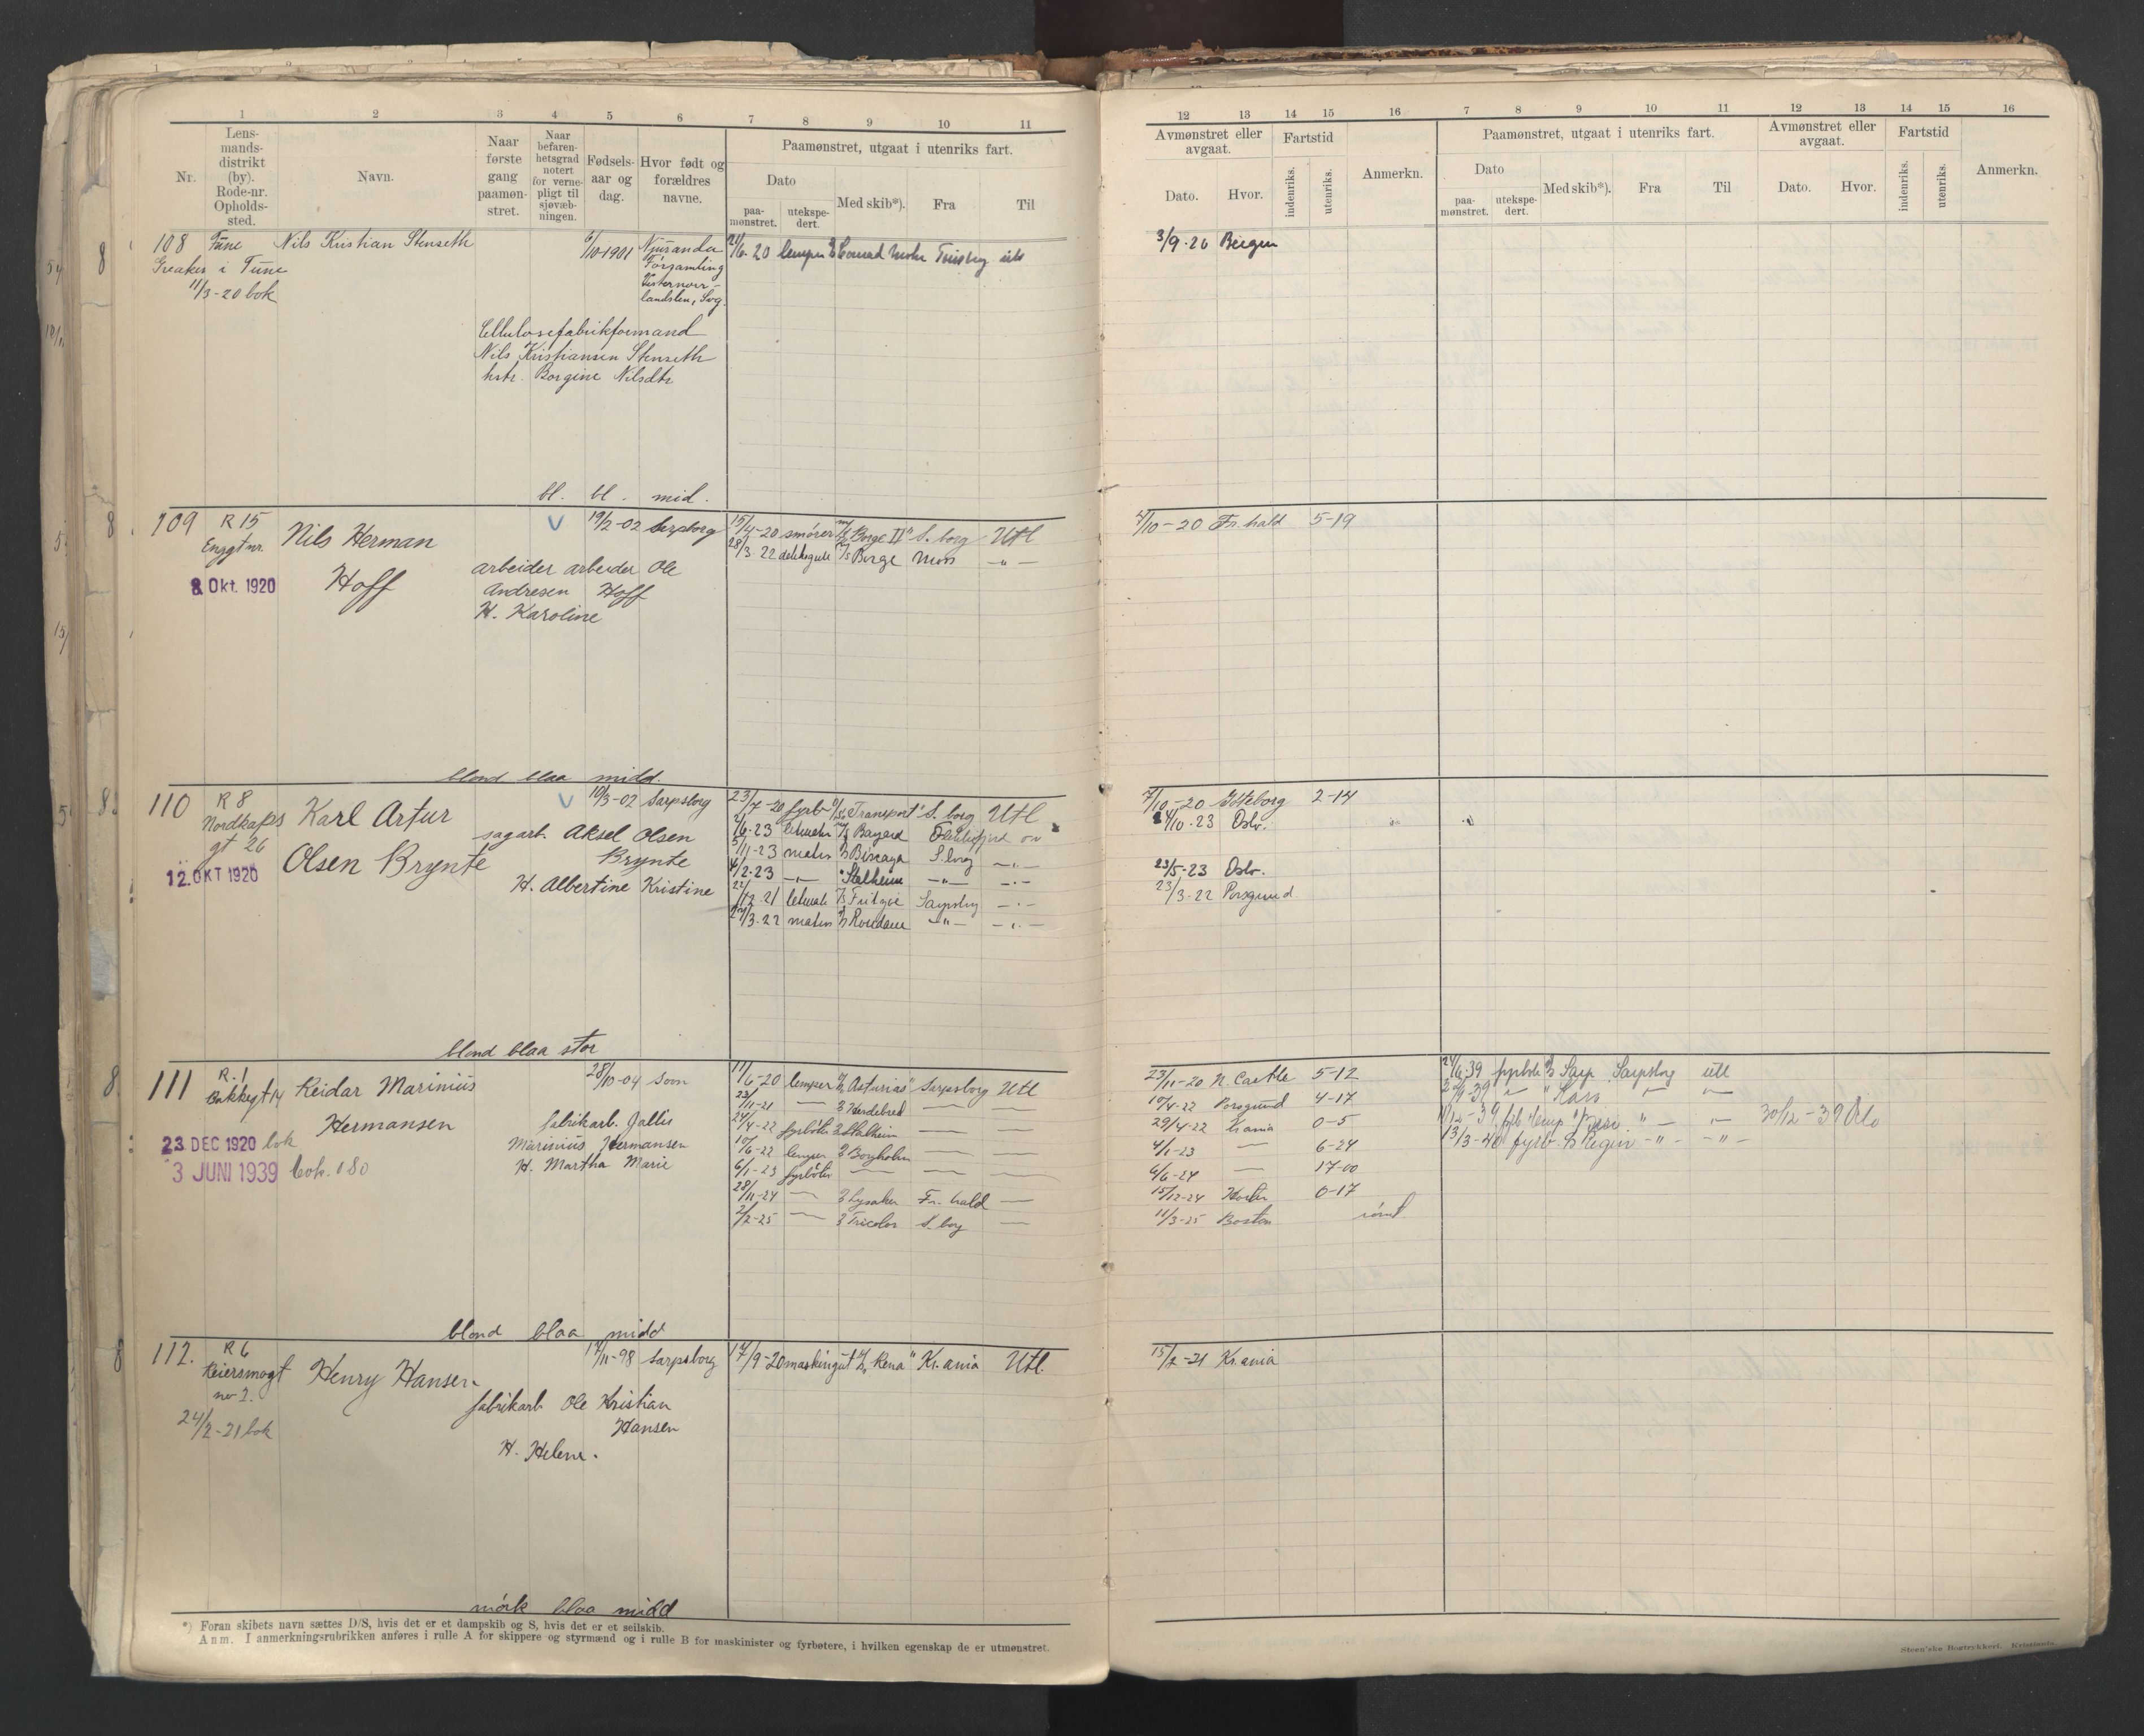 1 2 3 4 5 6 7 8 9 10 11
Nr.
Lens-
mands-
distrikt
(by).
Rode-nr.
Opholds-
sted.
Navn.
Naar
første
gang
paamøn-
stret.
Naar
befaren-
hetsgrad
notert
for verne-
pligt til
sjøvæb-
ningen.
Fødsels-
aar og
dag.
Hvor født og
forældres
navne.
Paamønstret, utgaat i utenriks fart.
Dato
paa-
mønstret.
utekspe-
dert.
Med skib*).
Fra
Til
12 13 14 15 16 7 8 9 10 11 12 13 14 15 16
Avmønstret eller
avgaat.
Dato.
Hvor.
Fartstid
indenriks.
utenriks.
Anmerkn.
Paamønstret, utgaat i utenriks fart.
Dato
paa-
mønstret.
utekspe-
dert.
Med skib*).
Fra
Til
Avmønstret eller
avgaat.
Dato.
Hvor.
Fartstid
indenriks.
utenriks.
Anmerkn.
108 Tune Nils Kristian Stenseth 6/10-1901 Njurunda
21/6-20 lemper Conrad Mohr utl 3/9-20 Bergen
Greaker i Tune
11/3-20 bok
Cellulosefabrikformand
Nils Kristiansen Stenseth
hstr. Borgine Nilsdtr
bl. bl. mid.
109 R 15 Nils Herman 19/2-02 Sarpsborg
15/4-20 smører "Borge II" S. borg Utl 7/10-20 Fr. hald 5-19
28/3-22 Borge Moss -"-
Hoff
8 Okt. 1920
arbeider arbeider Ole
Andresen Hoff
H. Karoline
blond blaa midd.
110 R 8 Karl Artur 10/3-02 Sarpsborg
Nordkaps
gt 26
Olsen Brynte
12. OKT 1920
sagarb. Aksel Olsen
Brynte
H. Albertine Kristine
23/7-20 fyrb "Transport" S. borg Utl 7/10-20 Göteborg 2-14
/6-23 Bayard 24/10-23 Oslo.
5/11-23 matros Biscaya S. borg -"-
/2-23 -"- Stalheim -"- -"- 23/5-23 Oslo.
22/12-21 Sarpsborg -"- 23/3-22 Porsgrund
27/3-22 matros -"- -"-
blond blaa stor
111 R. 1 Reidar Marinius 28/10-04 Soon
Bakkegt 14
Hermansen
23 DEC 1920 bok
3 JUNI 1939 bok. 180
fabrikarb. Jallis
Marinius Hermansen
H. Martha Marie
11/6-20 lemper "Asturias" Sarpsborg Utl 23/11-20 N. Castle 5-12
23/11-21 10/4-22 Porsgrund 4-17
24/4-22 fyrbøter Stalheim 29/4-22 Krania 0-5
10/6-22 lemper Borgholm 4/1-23 6-24
6/1-23 fyrbøter 6/6-24 17-00
28/11-24 Lysaker Fr. hald 15/12-24 0-17
2/2-25 Tricolor S. borg 11/3-25 Boston rømt.
24/6-39 Sarp Sarpsborg utl
30/12-39 Oslo
13/3-40 fyrb. -"- -"-
blond blaa midd
112. R 6 Henry Hansen 17/11-98 Sarpsborg
17/9-20 maskingut "Rena" Kr.ania Utl. 15/2-21 Kr.ania
24/2-21 bok
fabrikarb Ole Kristian
Hansen
H. Helene.
mørk blaa midd
*) Foran skibets navn sættes D/S, hvis det er et dampskib og S, hvis det er et seilskib.
Anm. I anmerkningsrubrikken anføres i rulle A for skippere og styrmænd og i rulle B for maskinister og fyrbøtere, i hvilken egenskap de er utmønstret.
Steen'ske Bogtrykkeri. Kristiania.